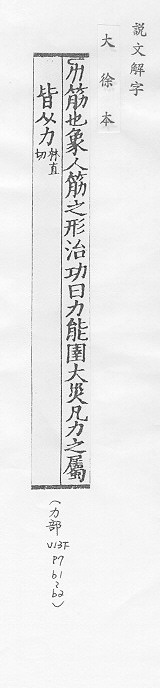 説文解字
大徐本
力筋也象人筋之形治功曰力能圉大災凡力之屬
皆从力林直切
(力部 V13下 P7 b1~b2)